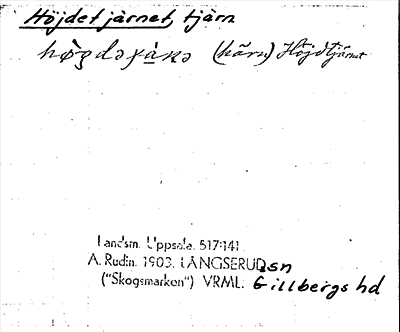 Höjdetjärnet, tjärn
(härn) Höjdtjärnet
Landsm. Uppsala. 517:141.
A. Rudin. 1903. LÅNGSERUD sn
("Skogsmarken") VRML. Gillbergs hd